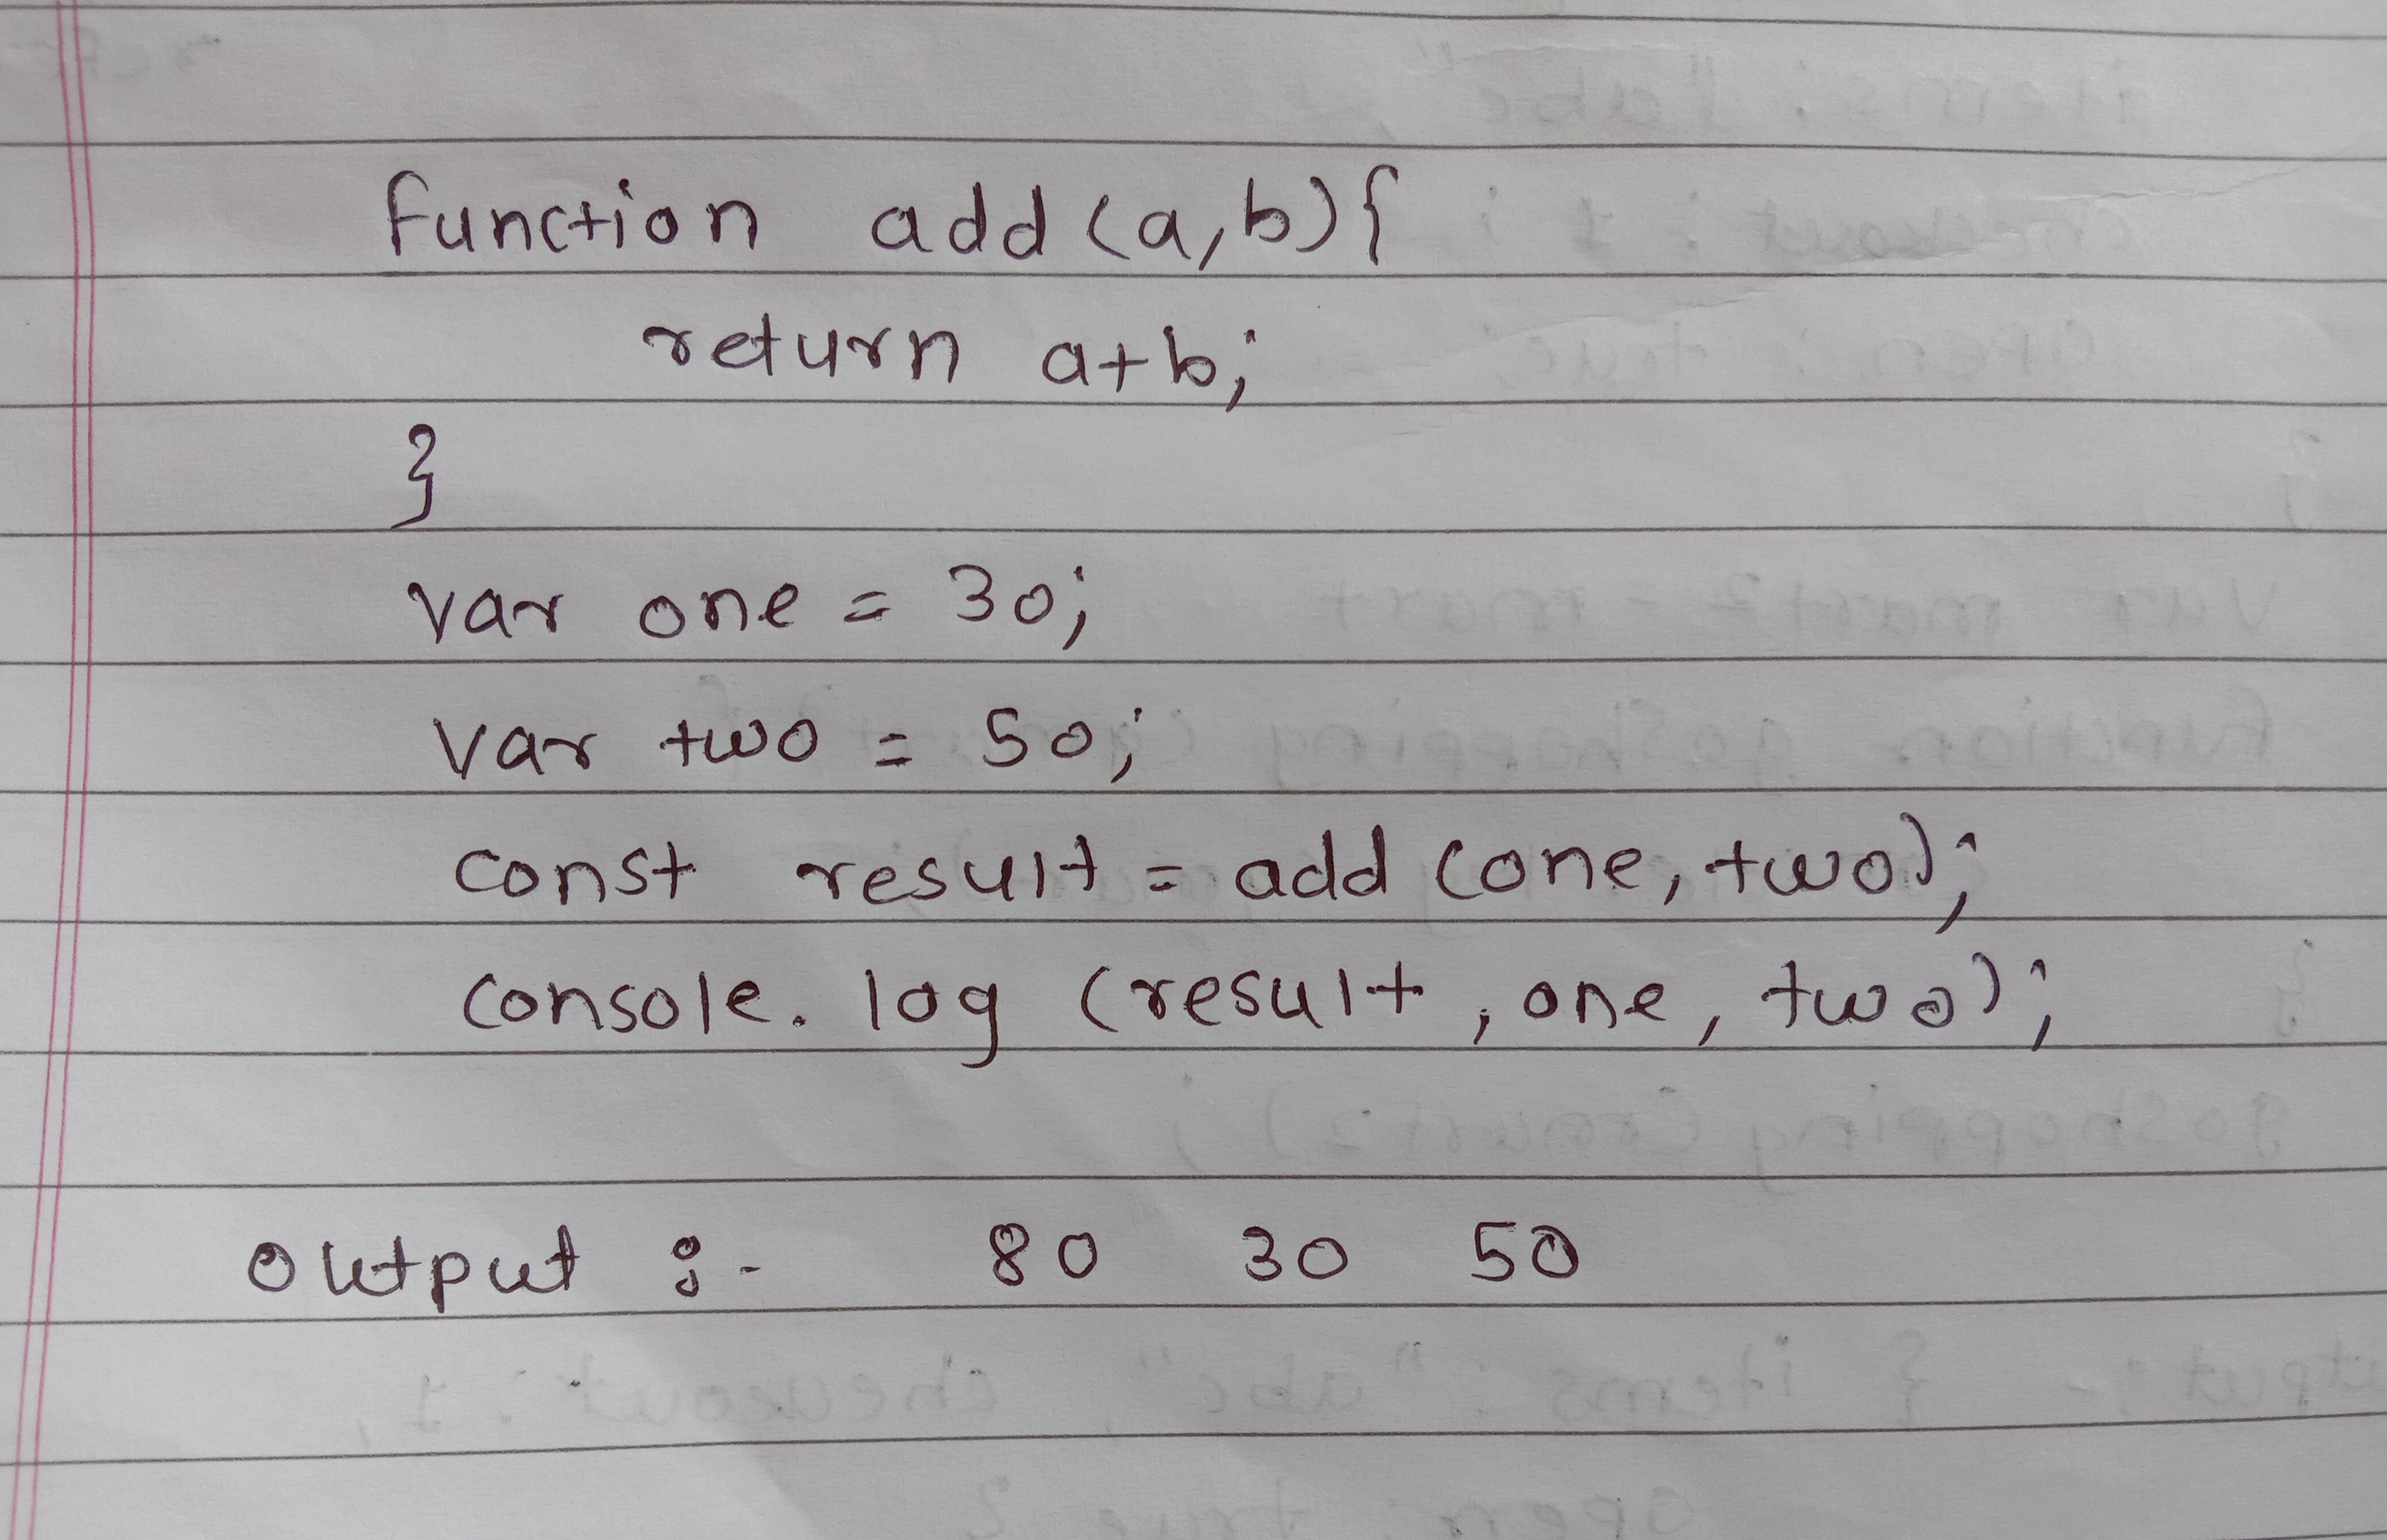 function add (a,b){
return a+b;
}
var one = 30;
var two = 50;
const result = add (one, two);
console. log (result, one, two);
output :- 80 30 50